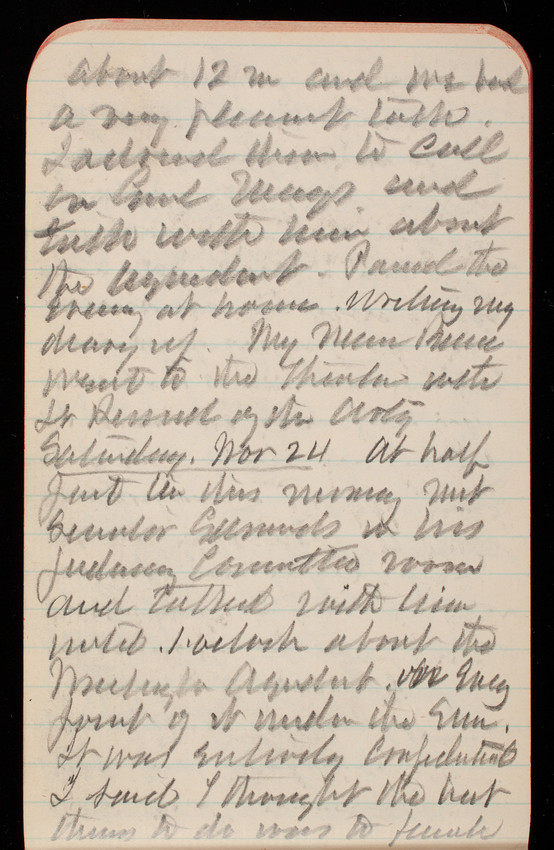 about 12 m and we had
a very pleasant talk.
I advised him to call
on Genl Meigs and
talk with him about
the Aqueduct. Passed the
evening at home. Writing my
diary up. My
went to the Theater with
Lt of the Arty
Saturday. Nov 24 At half
past ten this morning met
Senator Edmunds in his
Judiciary Committee room
and talked with him
until 1 oclock about the
Washington Aqueduct. on every
point of it under the Sun.
It was entirely Confidential
I said I thought the best
thing to do was to